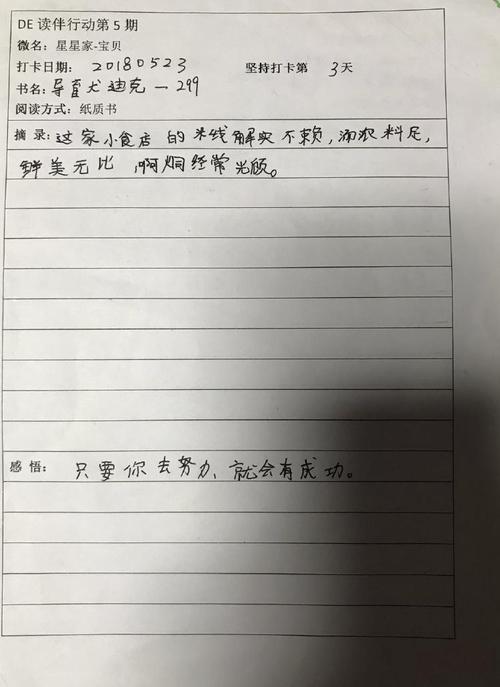 DE 读伴行动第 5 期
微名：星星家-宝贝
打卡日期：20180523 坚持打卡第 3 天
书名：导盲犬迪克一299
阅读方式：纸质书
摘 录：这家小食店的米线解实不赖，汤浓料足，
鲜美无比 啊炯经常光顾。
感 悟： 只要你去努力、就会有成功。